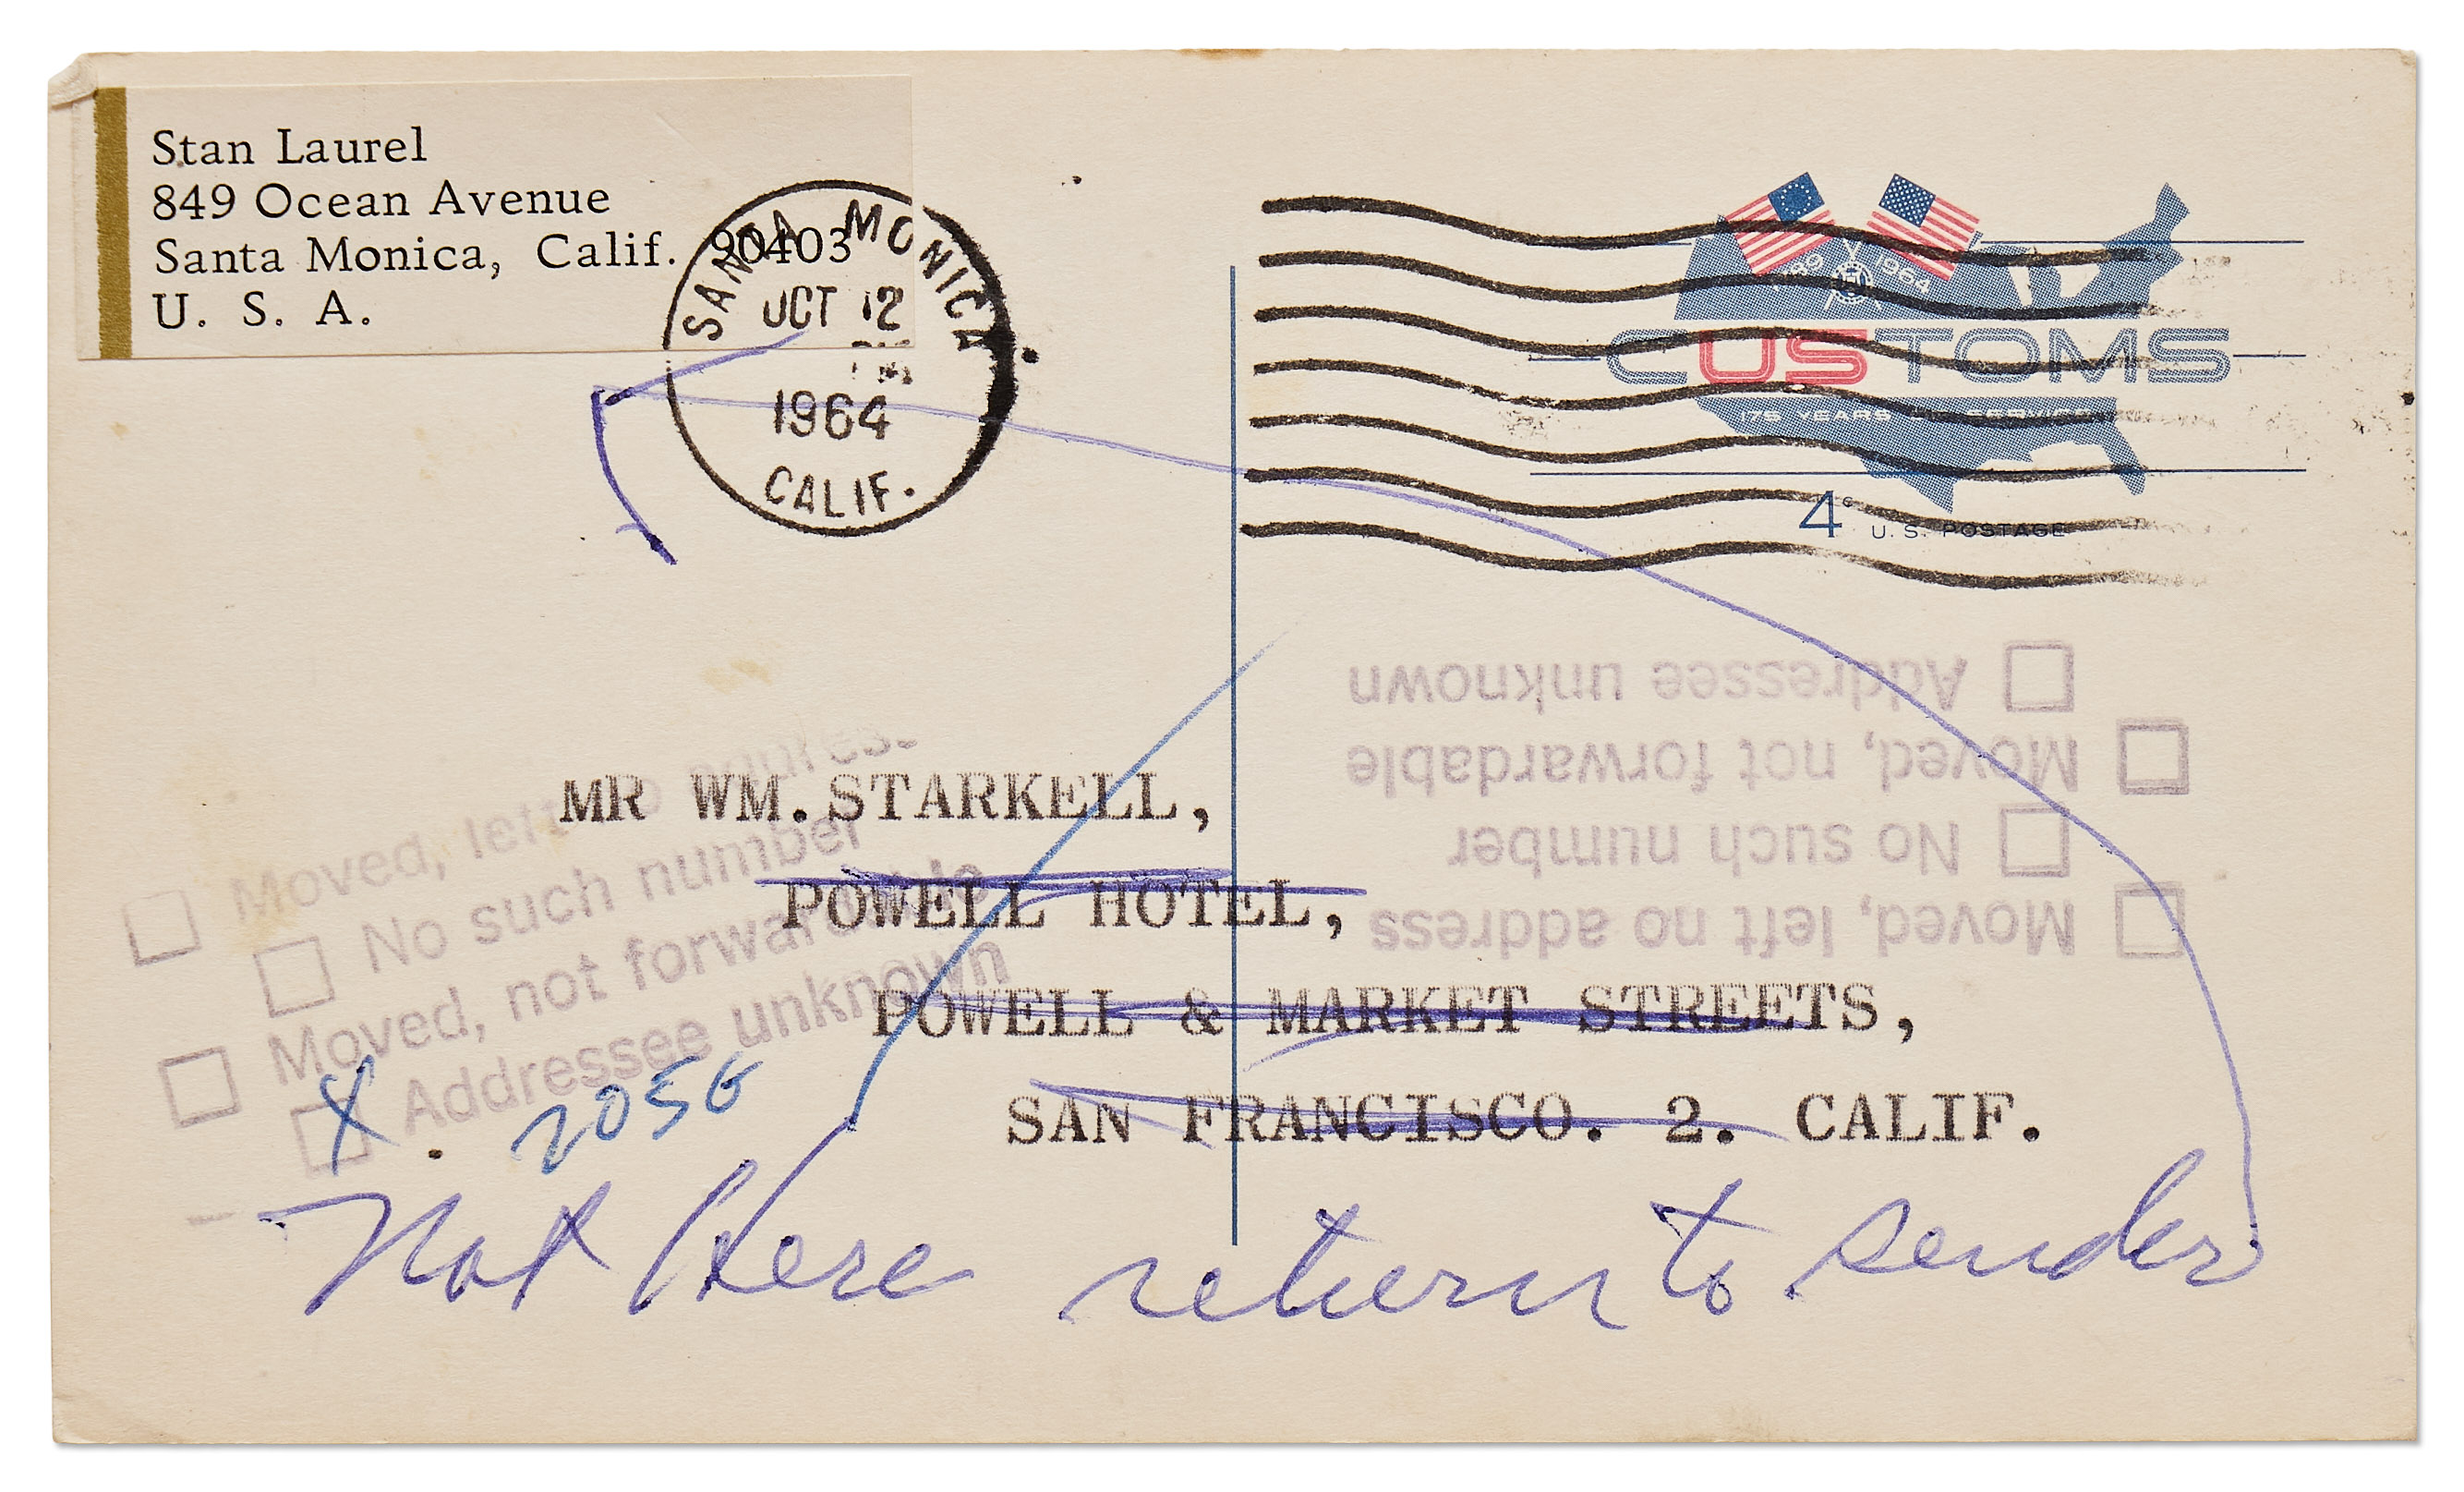 Stan Laurel
849 Ocean Avenue
Santa Monica, Calif. 90403
U. S. A.
SANTA MONICA
OCT 12
PM
1964
CALIF.
1789 1964
CUSTOMS
175 YEARS OF SERVICE
4¢ U.S. POSTAGE
MR WM. STARKELL,
POWELL HOTEL,
POWELL & MARKET STREETS,
SAN FRANCISCO. 2. CALIF.
Moved, left no address
No such number
Moved, not forwardable
Addressee unknown
X
2056
Moved, left no address
No such number
Moved, not forwardable
Addressee unknown
Not Here return to sender